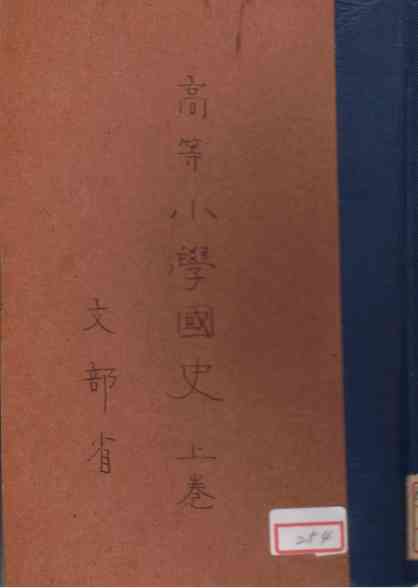 高等小學國史 上巻
文部省
254